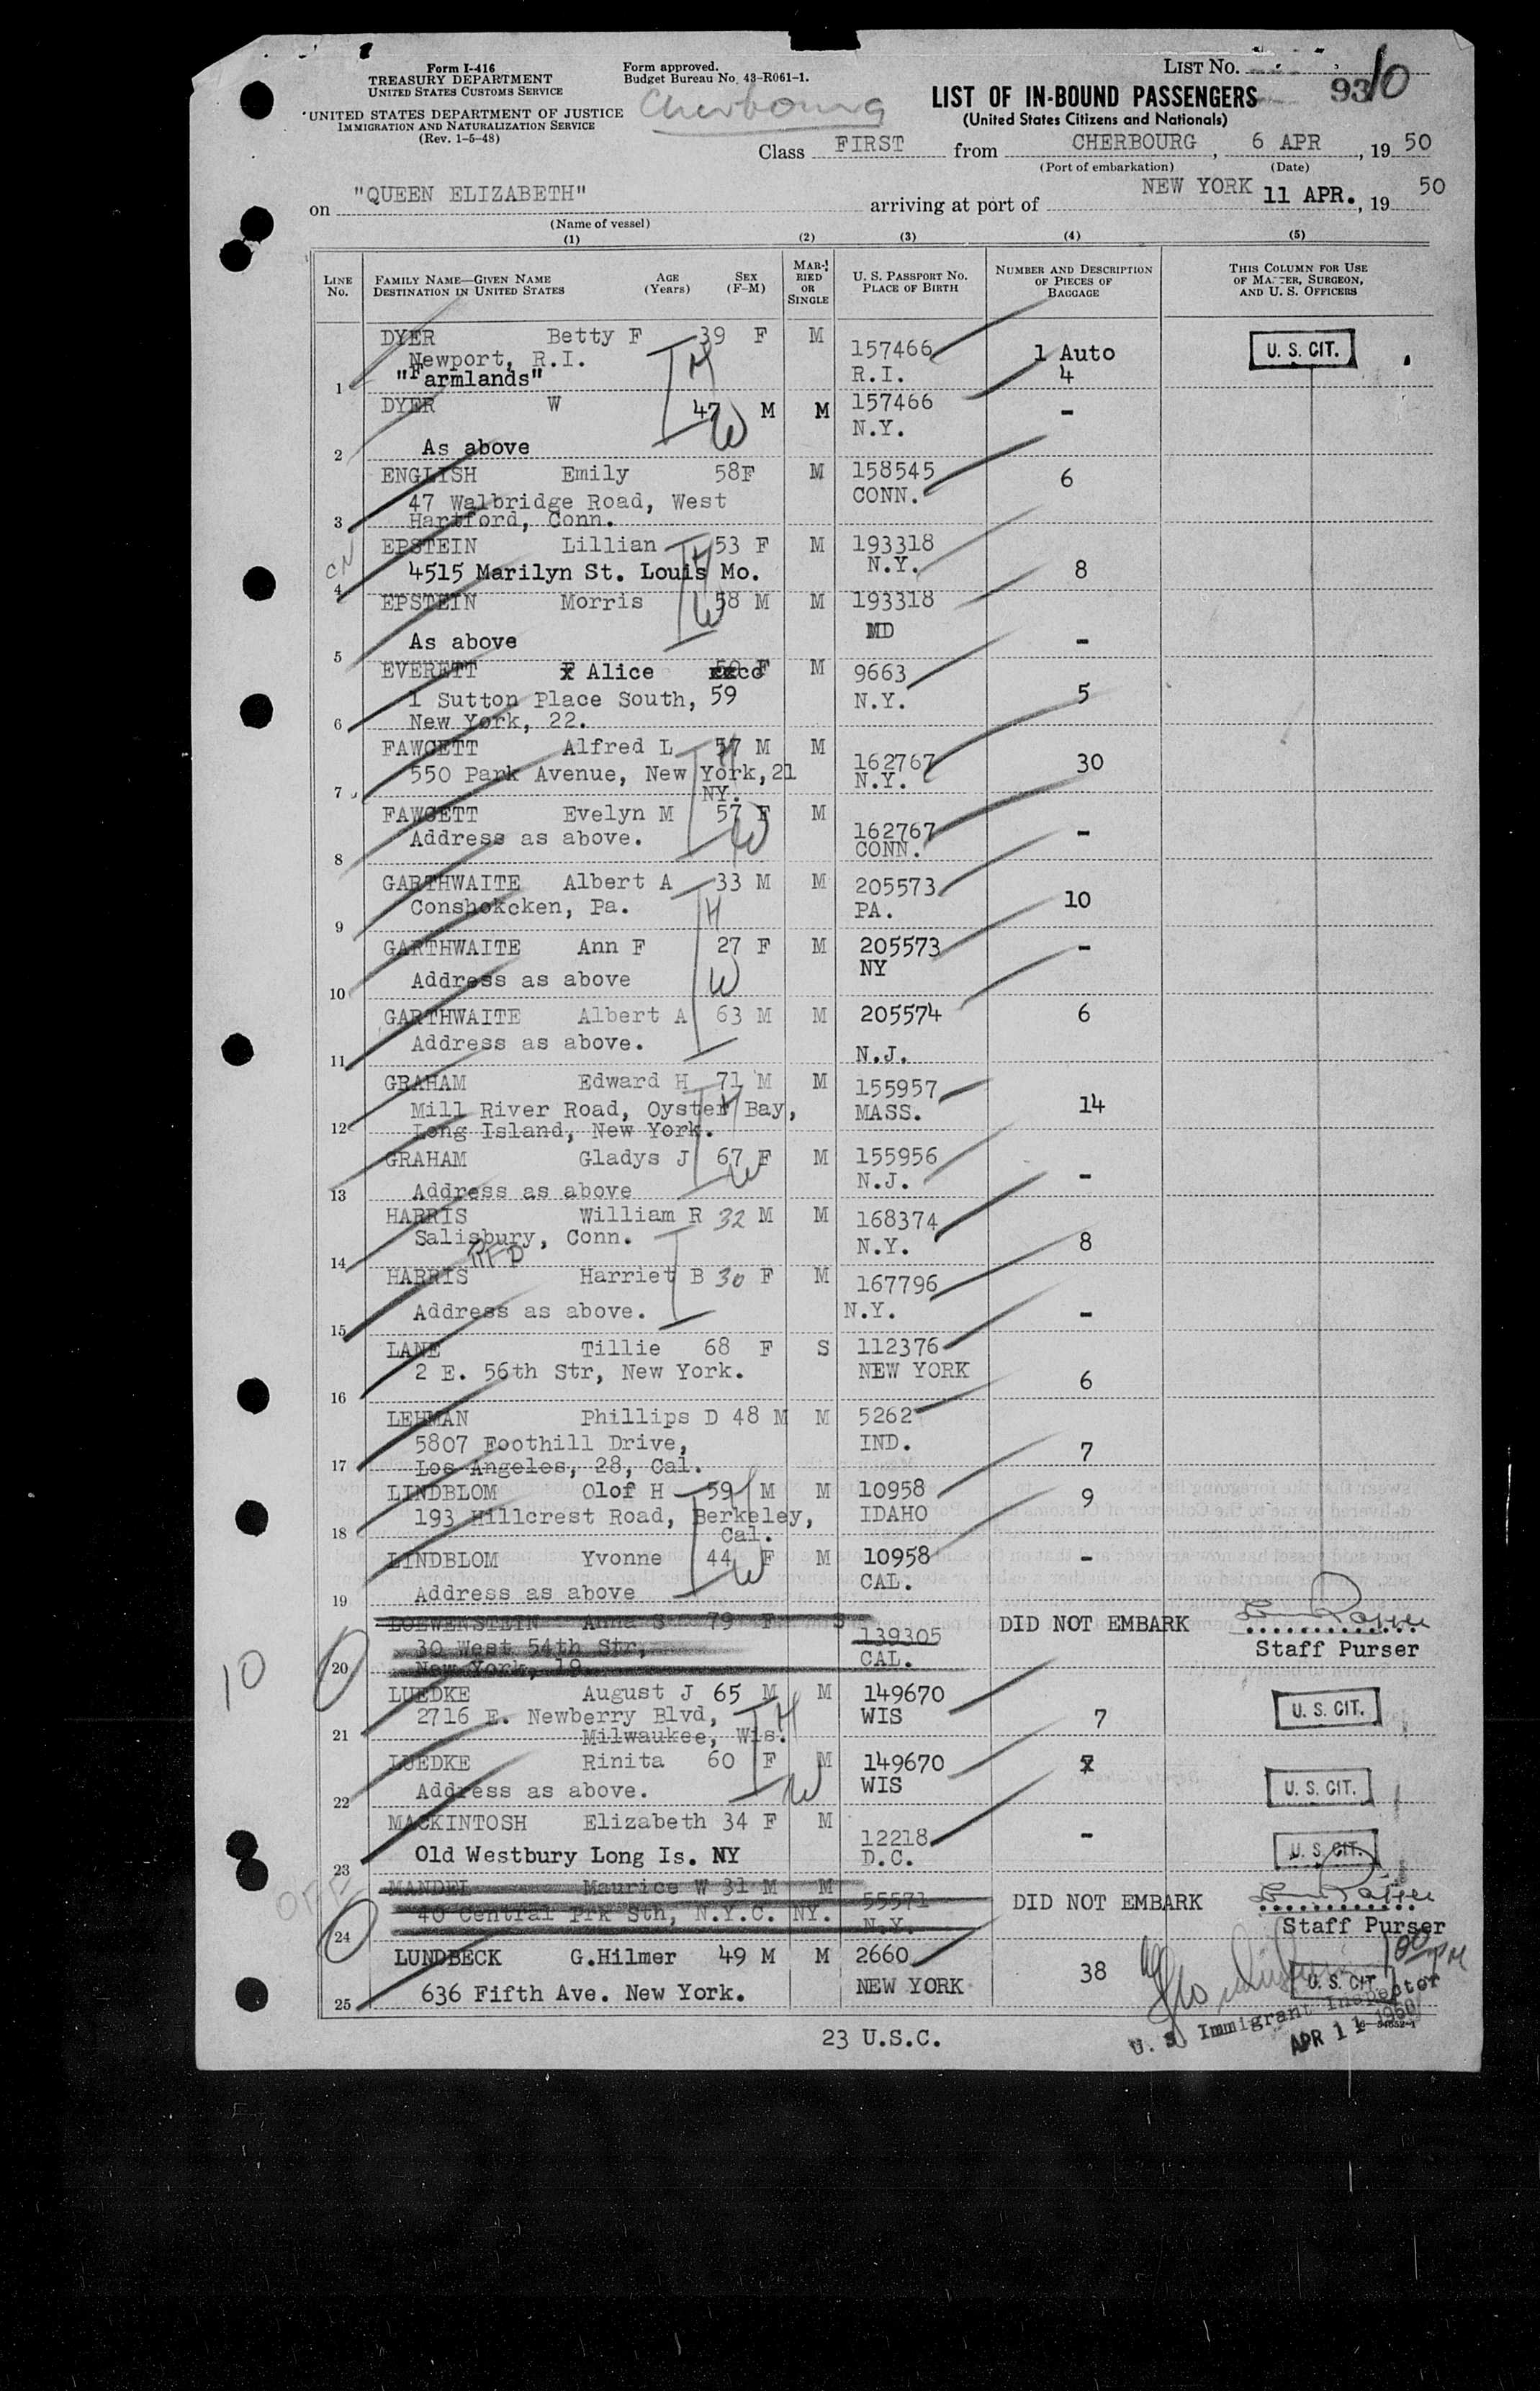 Form I-416
TREASURY DEPARTMENT
UNITED STATES CUSTOMS SERVICE
UNITED STATES DEPARTMENT OF JUSTICE
IMMIGRATION AND NATURALIZATION SERVICE
(Rev. 1-5-48)
Form approved.
Budget Bureau No. 43-R061-1.
Cherbourg
LIST NO.
93 10
LIST OF IN-BOUND PASSENGERS
(United States Citizens and Nationals)
Class FIRST from CHERBOURG, 6 APR, 19 50
(Port of embarkation) (Date)
on "QUEEN ELIZABETH" arriving at port of NEW YORK 11 APR., 19 50
(Name of vessel)
(1) (2) (3) (4) (5)
LINE No. FAMILY NAME—GIVEN NAME DESTINATION IN UNITED STATES AGE (Years) SEX (F-M) MARRIED OR SINGLE U. S. PASSPORT NO. PLACE OF BIRTH NUMBER AND DESCRIPTION OF PIECES OF BAGGAGE THIS COLUMN FOR USE OF MASTER, SURGEON, AND U. S. OFFICERS
DYER Betty F 39 F M 157466 1 Auto U. S. CIT.
Newport, R.I. R.I. 4
1 "Farmlands" H
DYER W 47 M M 157466 -
N.Y. W
2 As above
ENGLISH Emily 58F M 158545 6
47 Walbridge Road, West CONN.
3 Hartford, Conn.
CN
EPSTEIN Lillian 53 F M 193318
4 4515 Marilyn St. Louis Mo. H N.Y. 8
EPSTEIN Morris 58 M M 193318
W MD
5 As above -
EVERETT Alice F M 9663
1 Sutton Place South, 59 N.Y. 5
6 New York, 22.
FAWCETT Alfred L 57 M M 162767 30
7 550 Park Avenue, New York, 21 H N.Y.
NY.
FAWCETT Evelyn M 57 F M 162767 -
8 Address as above. W CONN.
GARTHWAITE Albert A 33 M M 205573 10
9 Conshokcken, Pa. H PA.
GARTHWAITE Ann F 27 F M 205573 -
NY
10 Address as above W
GARTHWAITE Albert A 63 M M 205574 6
11 Address as above. N.J.
GRAHAM Edward H 71 M M 155957 14
Mill River Road, Oyster Bay, H MASS.
12 Long Island, New York.
GRAHAM Gladys J 67 F M 155956 -
N.J. W
13 Address as above
HARRIS William R 32 M M 168374
14 Salisbury, Conn. N.Y. 8
RFD
HARRIS Harriet B 30 F M 167796
15 Address as above. N.Y. -
LANE Tillie 68 F S 112376
16 2 E. 56th Str, New York. NEW YORK 6
LEHMAN Phillips D 48 M M 5262
5807 Foothill Drive, IND. 7
17 Los Angeles, 28, Cal.
LINDBLOM Olof H 59 M M 10958 9
18 193 Hillcrest Road, Berkeley, H IDAHO
Cal.
LINDBLOM Yvonne 44 F M 10958 -
19 Address as above W CAL.
LOEWENSTEIN Anna S 79 F S 139305 DID NOT EMBARK
30 West 54th Str, CAL. Staff Purser
10 20 New York, 19.
LUEDKE August J 65 M M 149670 U. S. CIT.
2716 E. Newberry Blvd, H WIS 7
21 Milwaukee, Wis.
LUEDKE Rinita 60 F M 149670
22 Address as above. W WIS U. S. CIT.
MACKINTOSH Elizabeth 34 F M 12218 -
23 Old Westbury Long Is. NY D.C. U. S. CIT.
OFF
MANDEL Maurice W 31 M M 55571 DID NOT EMBARK
24 40 Central Prk Sth, N.Y.C. NY. N.Y. Staff Purser
LUNDBECK G.Hilmer 49 M M 2660 38
25 636 Fifth Ave. New York. NEW YORK U. S. CIT.
100 PM
U. S. Immigrant Inspector
APR 11 1950
23 U.S.C.